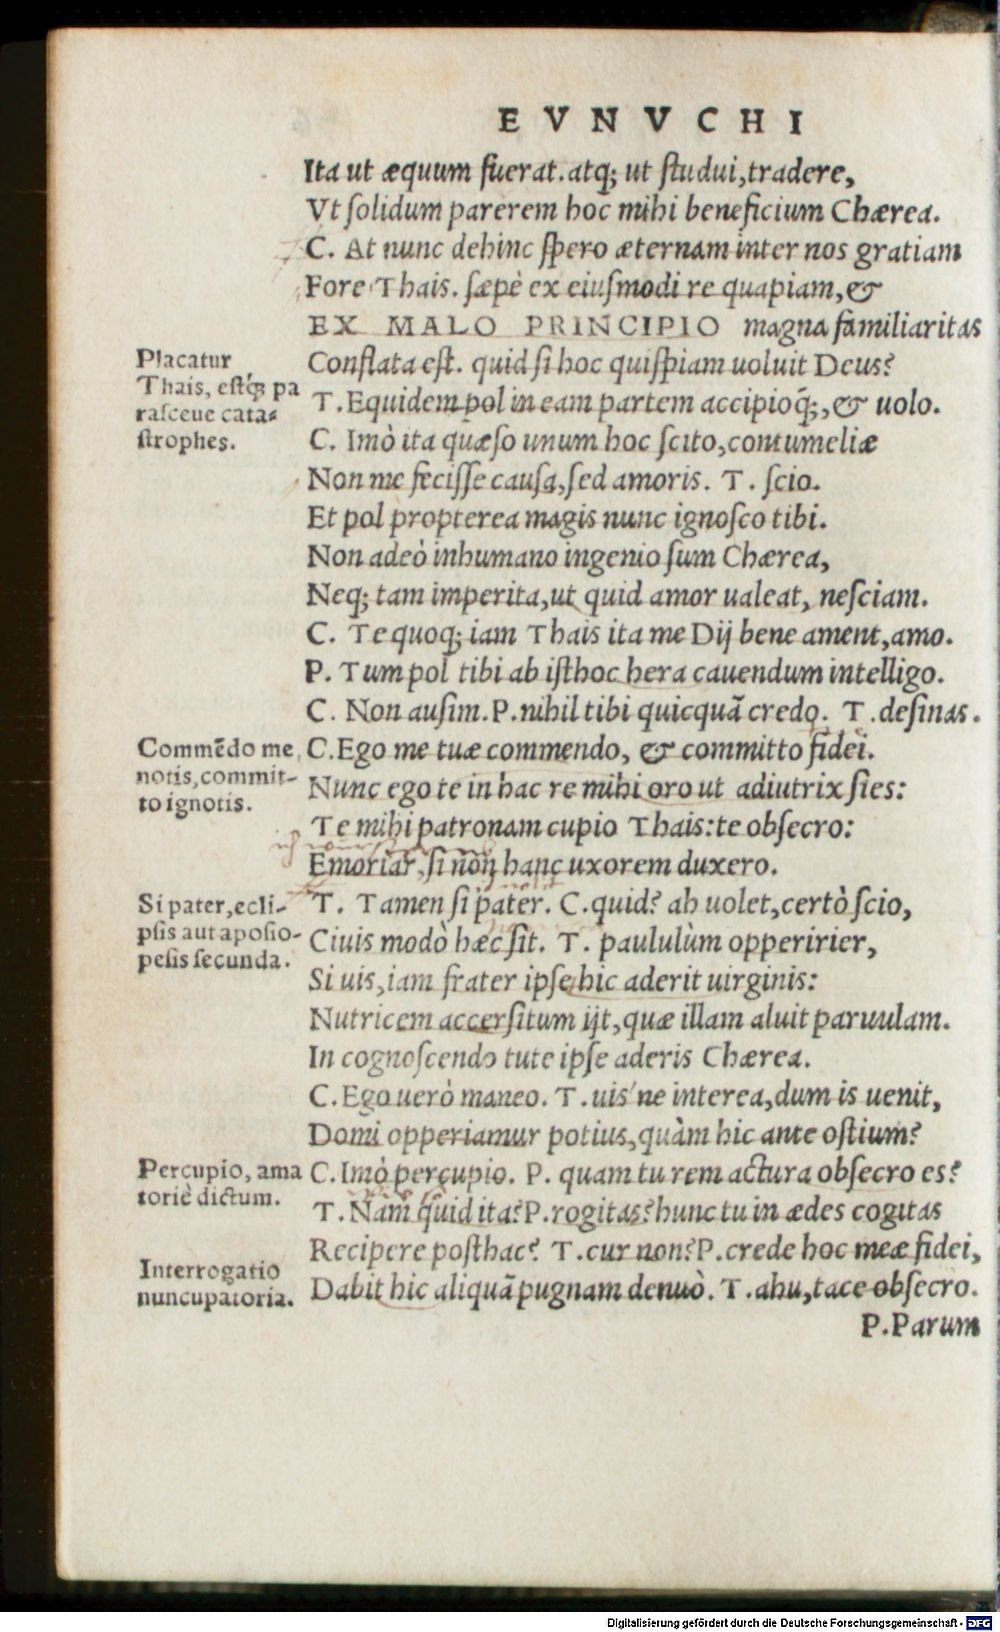 EVNVCHI
Ita ut æquum fuerat. atq; ut ſtudui, tradere,
Vt ſolidum parerem hoc mihi beneficium Chærea.
C. At nunc dehinc ſpero æternam inter nos gratiam
Fore Thais. ſæpè ex eiuſmodi re quapiam, &
EX MALO PRINCIPIO magna familiaritas
Conflata eſt. quid ſi hoc quiſpiam uoluit Deus?
T. Equidem pol in eam partem accipioq̃;, & uolo.
C. Imò ita quæſo unum hoc ſcito, contumeliæ
Non me feciſſe cauſa, ſed amoris. T. ſcio.
Et pol propterea magis nunc ignoſco tibi.
Non adeò inhumano ingenio ſum Chærea,
Neq; tam imperita, ut quid amor ualeat, neſciam.
C. Te quoq; iam Thais ita me Dij bene ament, amo.
P. Tum pol tibi ab iſthoc hera cauendum intelligo.
C. Non auſim. P. nihil tibi quicquã credo. T. deſinas.
C. Ego me tuæ commendo, & committo fidei.
Nunc ego te in hac re mihi oro ut adiutrix ſies:
Te mihi patronam cupio Thais: te obſecro:
Emoriar, ſi non hanc uxorem duxero.
T. Tamen ſi pater. C. quid? ah uolet, certò ſcio,
Ciuis modò hæc ſit. T. paululùm opperirier,
Si uis, iam frater ipſe hic aderit uirginis:
Nutricem accerſitum ijt, quæ illam aluit paruulam.
In cognoſcendo tute ipſe aderis Chærea.
C. Ego uerò maneo. T. uis' ne interea, dum is uenit,
Domi opperiamur potius, quàm hic ante oſtium?
C. Imò percupio. P. quam tu rem actura obſecro es?
T. Nam quid ita? P. rogitas? hunc tu in ædes cogitas
Recipere poſthac? T. cur non? P. crede hoc meæ fidei,
Dabit hic aliquã pugnam denuò. T. ahu, tace obſecro.
P. Parum
Placatur
Thais, eſtq́; pa
raſceue cata-
ſtrophes.
Commẽdo me
notis, commit-
to ignotis.
Si pater, ecli-
pſis aut apoſio-
peſis ſecunda.
Percupio, ama
toriè dictum.
Interrogatio
nuncupatoria.
Digitalisierung gefördert durch die Deutsche Forschungsgemeinschaft - DFG